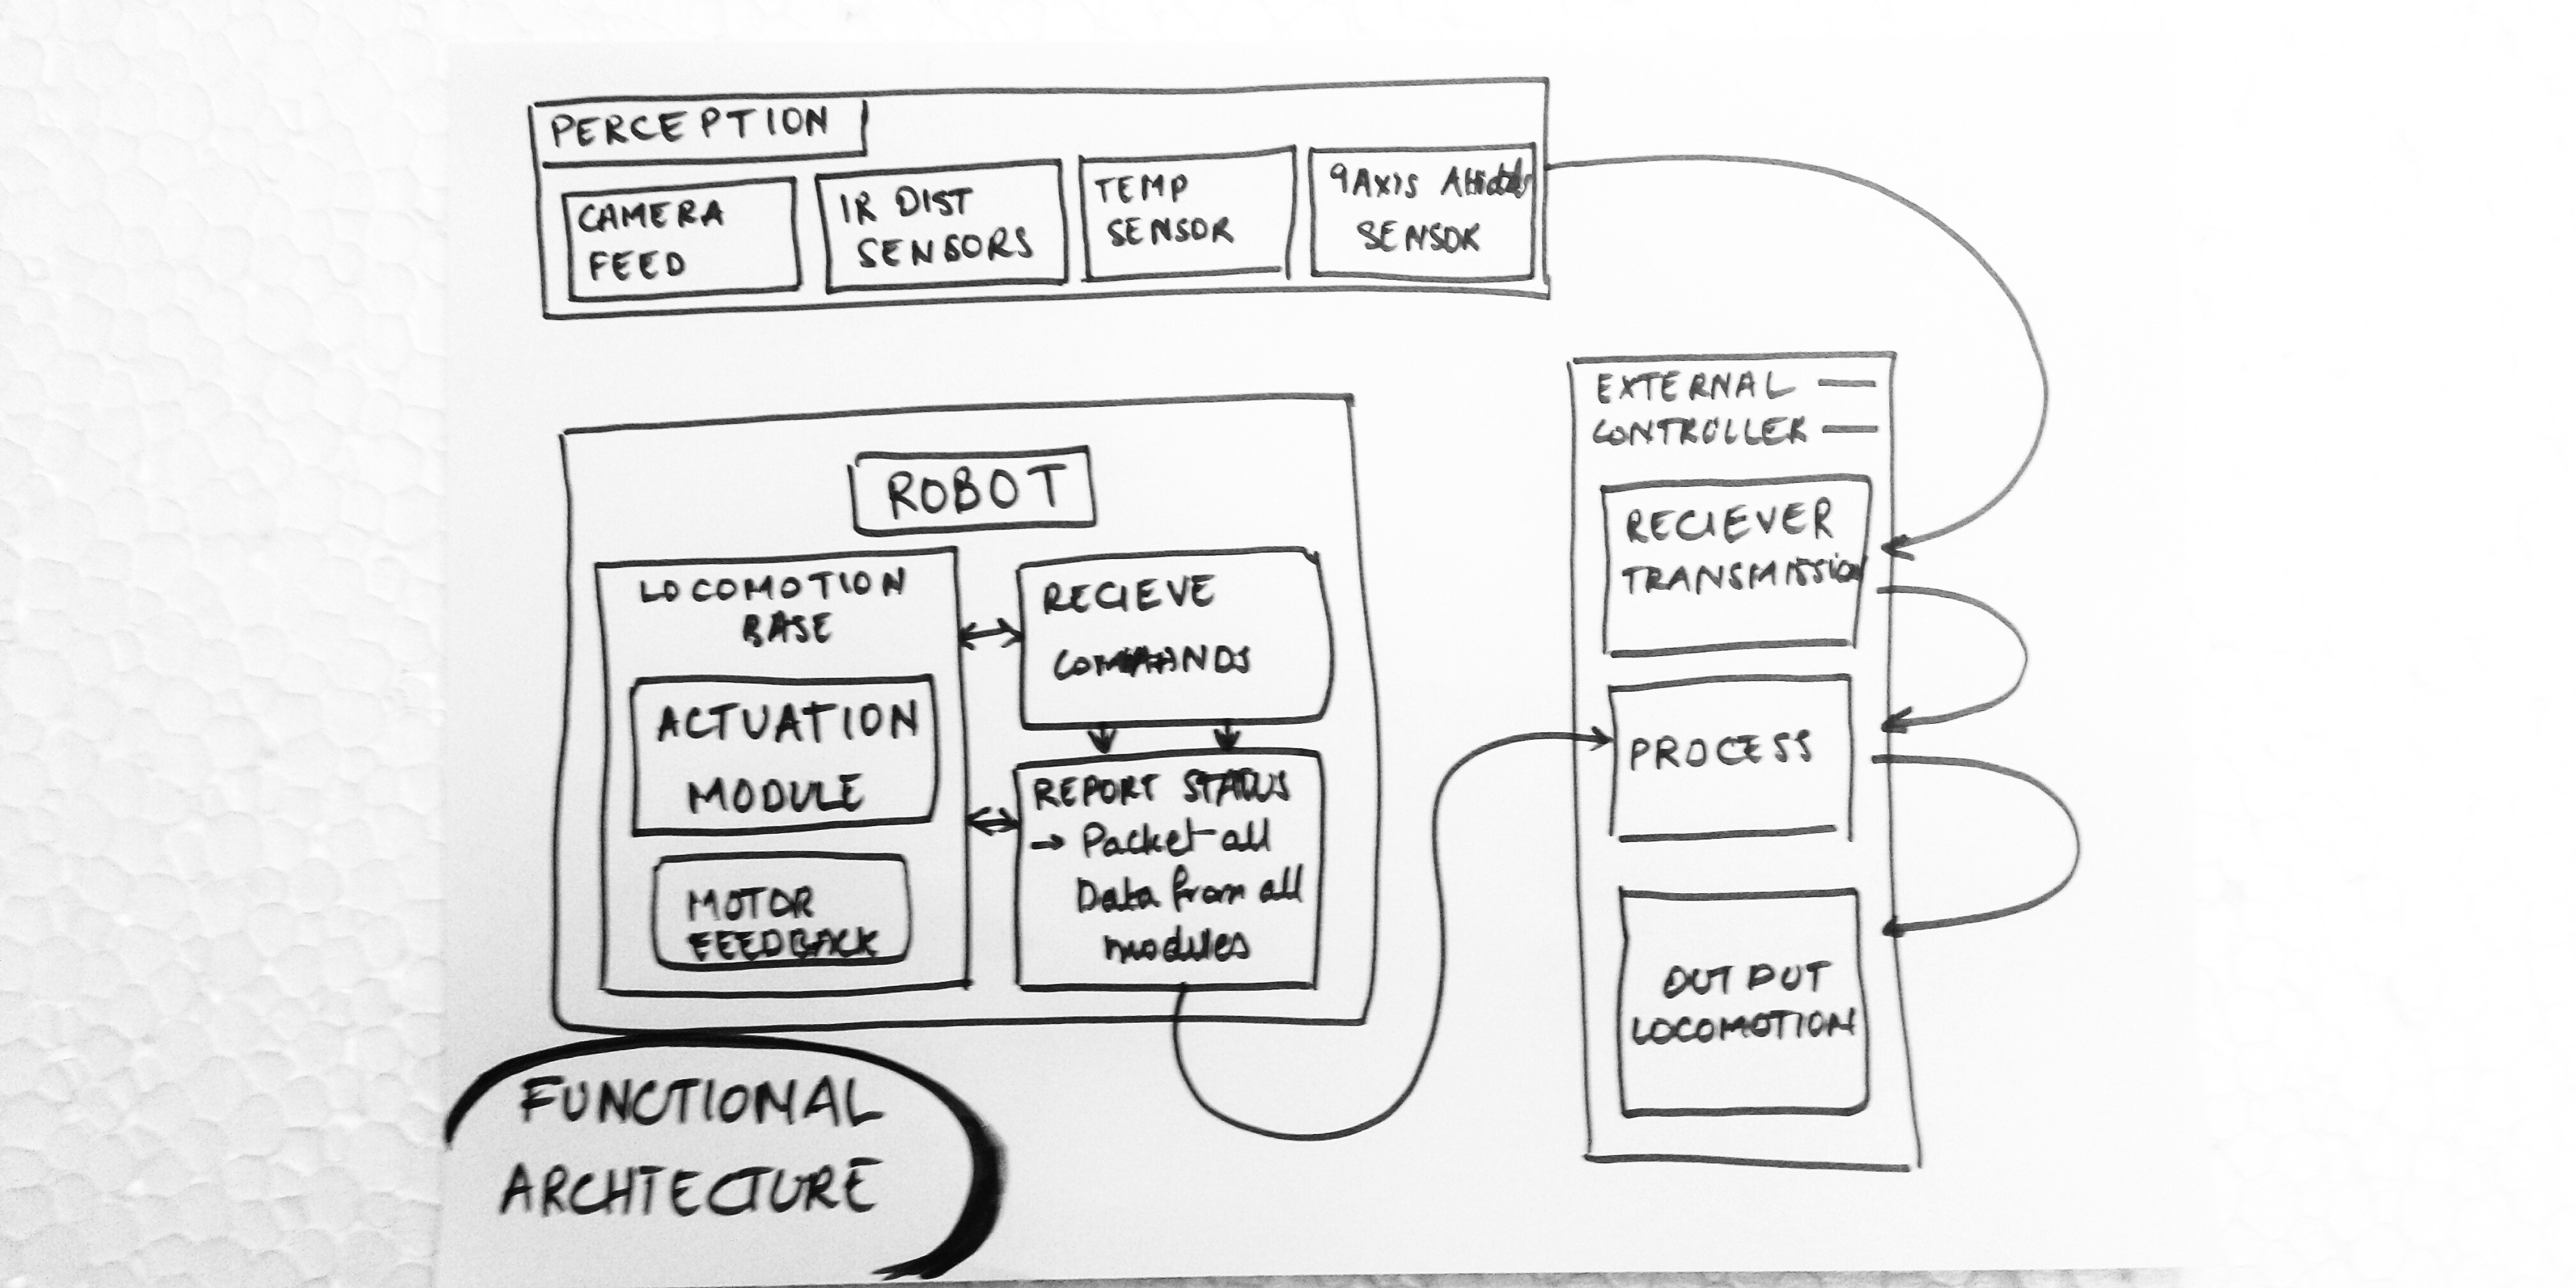 PERCEPTION
CAMERA
FEED
IR DIST
SENSORS
TEMP
SENSOR
9AXIS
SENSOR
EXTERNAL
CONTROLLER
RECIEVER
TRANSMISSION
PROCESS
OUTPUT
LOCOMOTION
ROBOT
LOCOMOTION
BASE
ACTUATION
MODULE
MOTOR
FEEDBACK
RECIEVE
COMMANDS
REPORT STATUS
→ Packet all
Data from all
modules
FUNCTIONAL
ARCHTECTURE